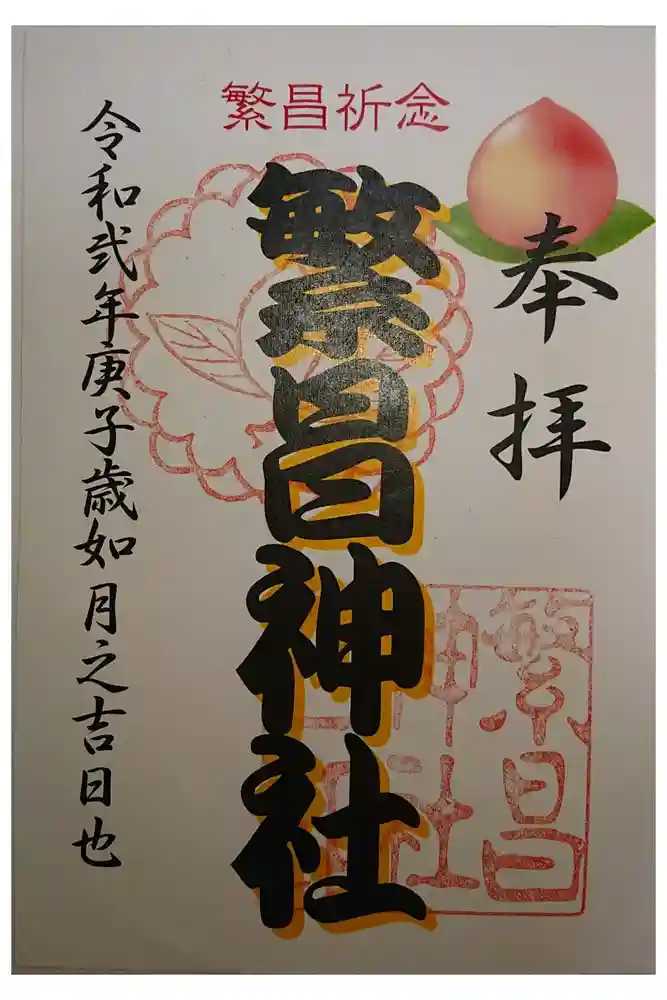 繁昌祈念
奉拝
繁昌神社
繁昌
神社
令和弐年庚子歳如月之吉日也